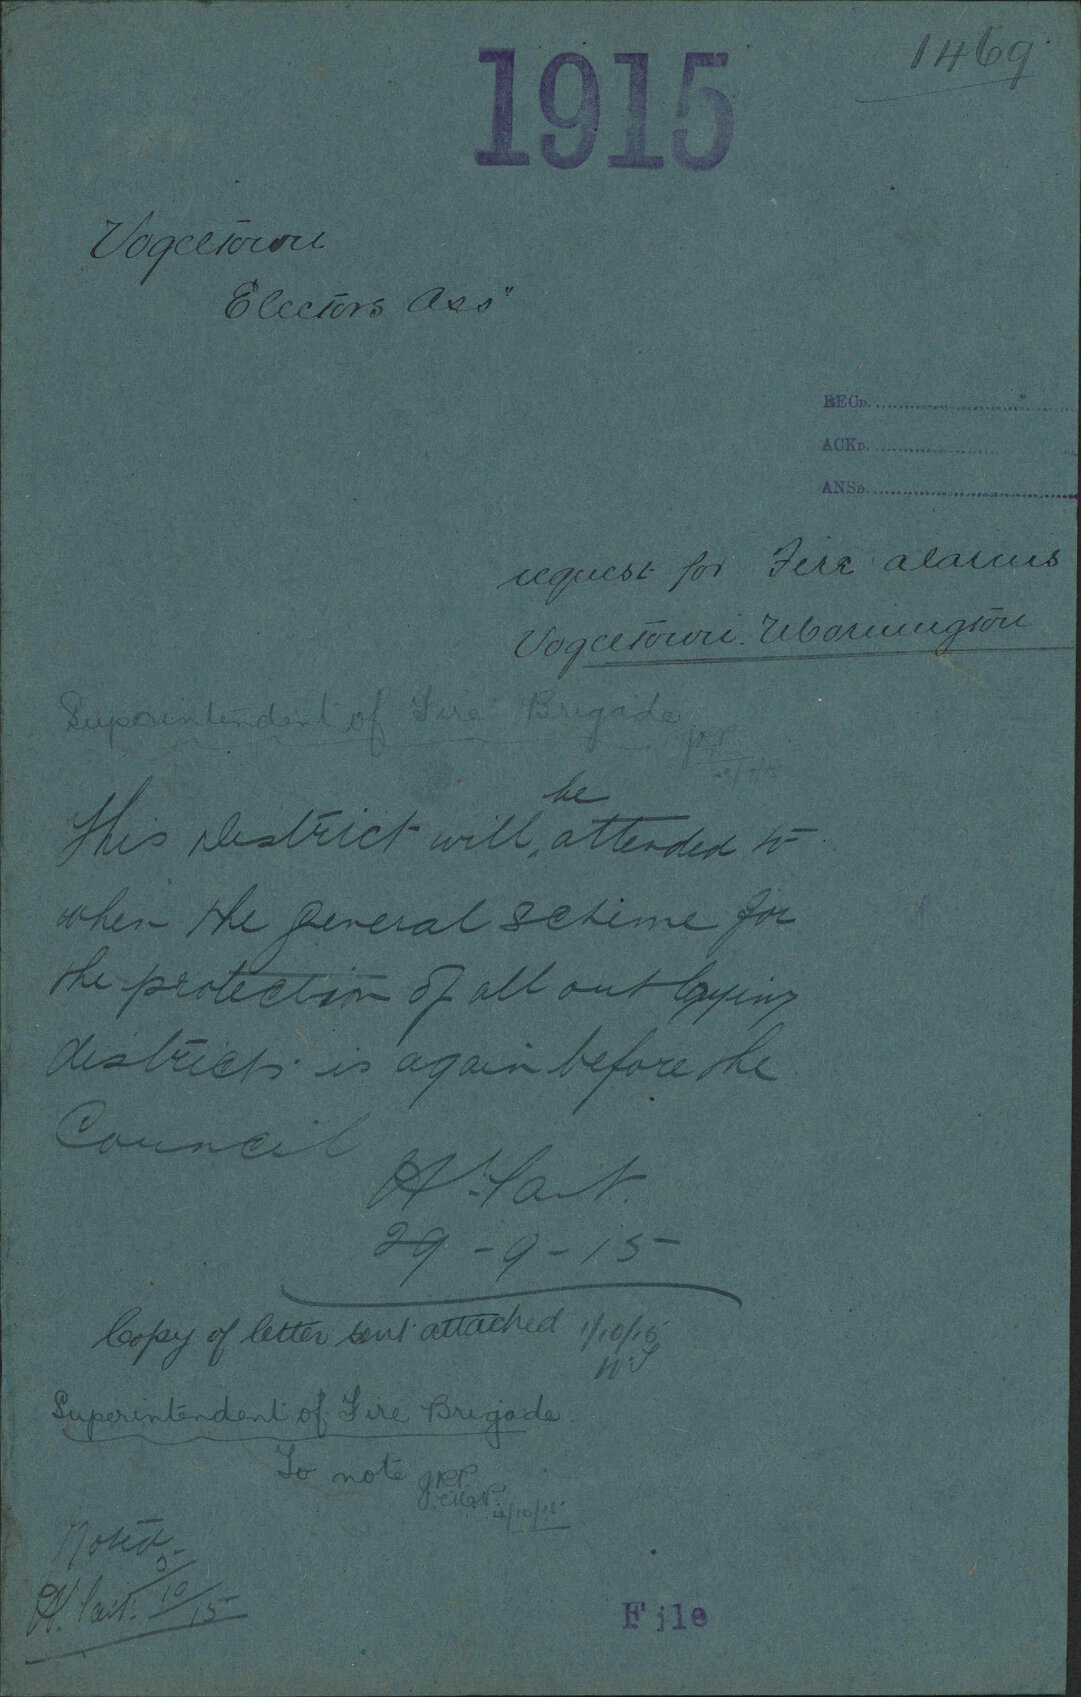 1469
1915
Vogeltown
Electors Ass"
RECD.
ACKD.
ANSD.
request for Fire alarms
Vogeltown. Mornington
Superintendent of Fire Brigade
This District will be attended to
when the general scheme for
the protection of all out lying
districts is again before the
Council
H Tait.
29-9-15
Copy of letter sent attached 1/10/15
Superintendent of Fire Brigade.
To note
4/10/15
Noted
H. Tait. 5/10/15
File